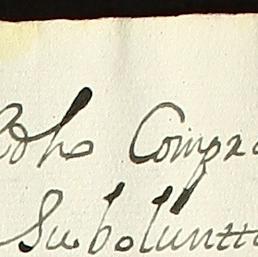 dho Compra
Su boluntta